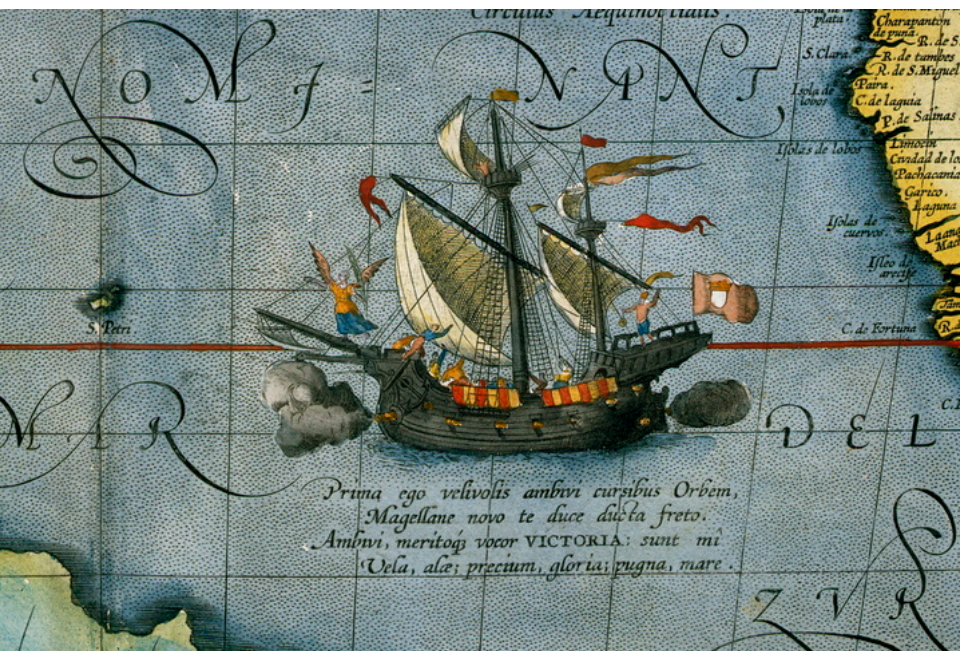 Circulus Aequinoctialis.
plata.
Charapanton
de puna.
S. Clara.
R. de tumbes
R. de S. Miguel
Paira.
Isola de
lobos
C. de laguia
P. de Salinas
NOMI-NINT
Isolas de lobos
Limocin
Cividad de lo
Pachacama
Garico.
Laguna
Isolas de
cuervos.
Isleo de
arecife
S. Petri
C. de Fortuna
R.
MAR DEL
Prima ego velivolis ambivi cursibus Orbem,
Magellane novo te duce ducta freto.
Ambivi, meritoqȝ vocor VICTORIA: sunt mî
Vela, alæ; precium, gloria; pugna, mare.
ZVR